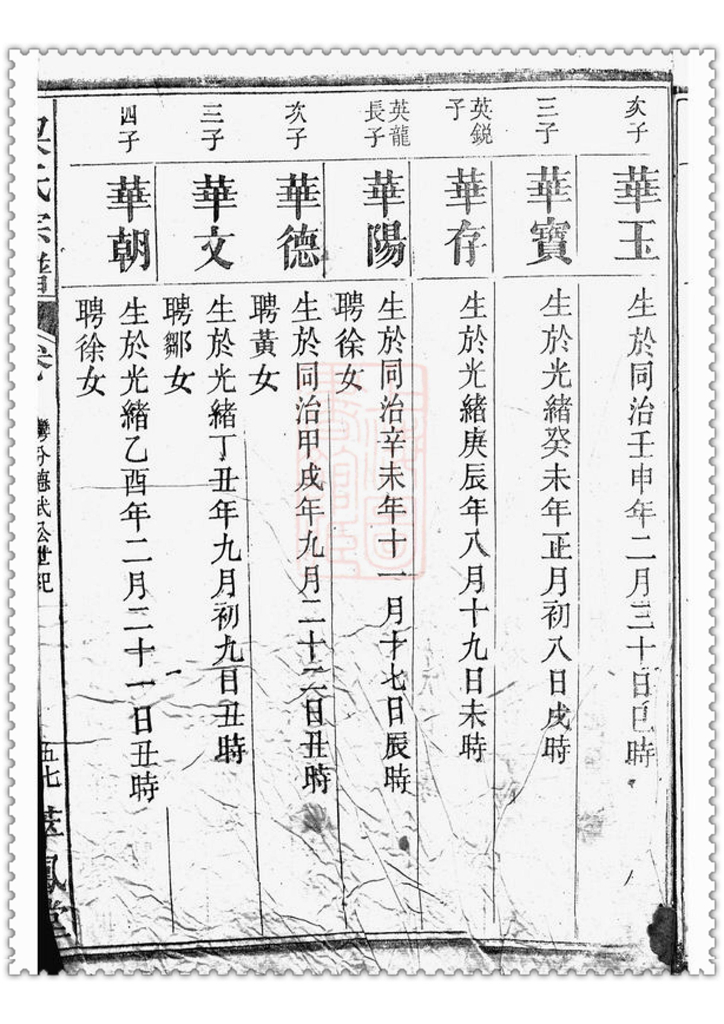 次子
華玉
生於同治壬申年二月三十日巳時
三子
華寶
生於光緒癸未年正月初八日戌時
英銳
子
華存
生於光緒庚辰年八月十九日未時
英龍
長子
華陽
生於同治辛未年十一月十七日辰時
聘徐女
次子
華德
生於同治甲戌年九月二十六日丑時
聘黃女
三子
華文
生於光緒丁丑年九月初九日丑時
聘鄒女
四子
華朝
生於光緒乙酉年二月二十一日丑時
聘徐女
氏宗譜
卷
德武公世紀
五七
鳳堂